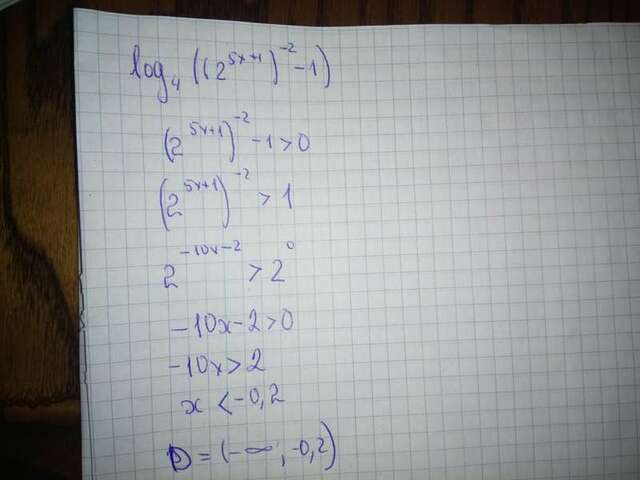 log₄ ((2^(5x+1))^(-2) -1)
(2^(5x+1))^(-2) -1>0
(2^(5x+1))^(-2) > 1
2^(-10x-2) > 2^0
-10x-2>0
-10x>2
x < -0,2
D = (-∞; -0,2)